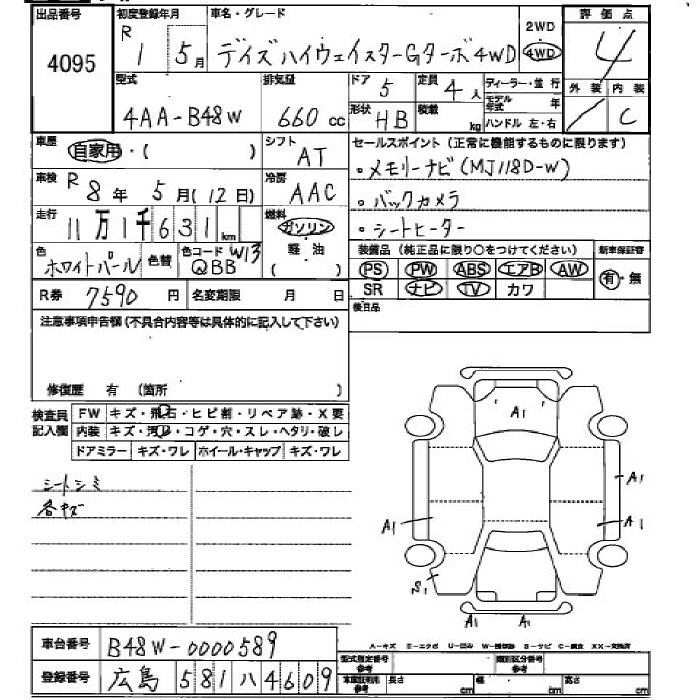 出品番号 初度登録年月 車名・グレード 2WD 評価点
4095 R 1 5月 デイズハイウェイスターGターボ4WD 4WD 4
型式 排気量 ドア 5 定員 4人 ディーラー・並行 外装 内装
4AA-B48W 660cc 形状 HB 積載 kg モデル年式 年 ハンドル 左・右 C
車歴 自家用・( ) シフト AT セールスポイント(正常に機能するものに限ります)
車検 R 8年 5月(12日) 冷房 AAC ・メモリーナビ(MJ118D-W)
・バックカメラ
走行 11万1千631km 燃料 ガソリン ・シートヒーター
色 ホワイトパール 色替 色コード W13 QBB 軽・油 ( ・ ) 装備品(純正品に限り○をつけてください) 新車保証書
PS PW ABS エアB AW 有・無
R券 7590円 名変期限 月 日 SR ナビ TV カワ
注意事項申告欄(不具合内容等は具体的に記入して下さい) 後日品
修復歴 有 (箇所 )
検査員記入欄 FW キズ・飛石・ヒビ割・リペア跡・X要
内装 キズ・汚れ・コゲ・穴・スレ・ヘタリ・破レ
ドアミラー キズ・ワレ ホイール・キャップ キズ・ワレ
A1
シートシミ
各キズ
A1
A1 A1
S1
A1 A1
車台番号 B48W-0000589
A-キズ E-エクボ U-凹み W-補修跡 S-サビ C-腐食 XX-交換済
登録番号 広島 581 ハ 4609
型式指定番号 参考 類別区分番号 参考
車車証有用 参考 長さ cm 幅 cm 高さ cm